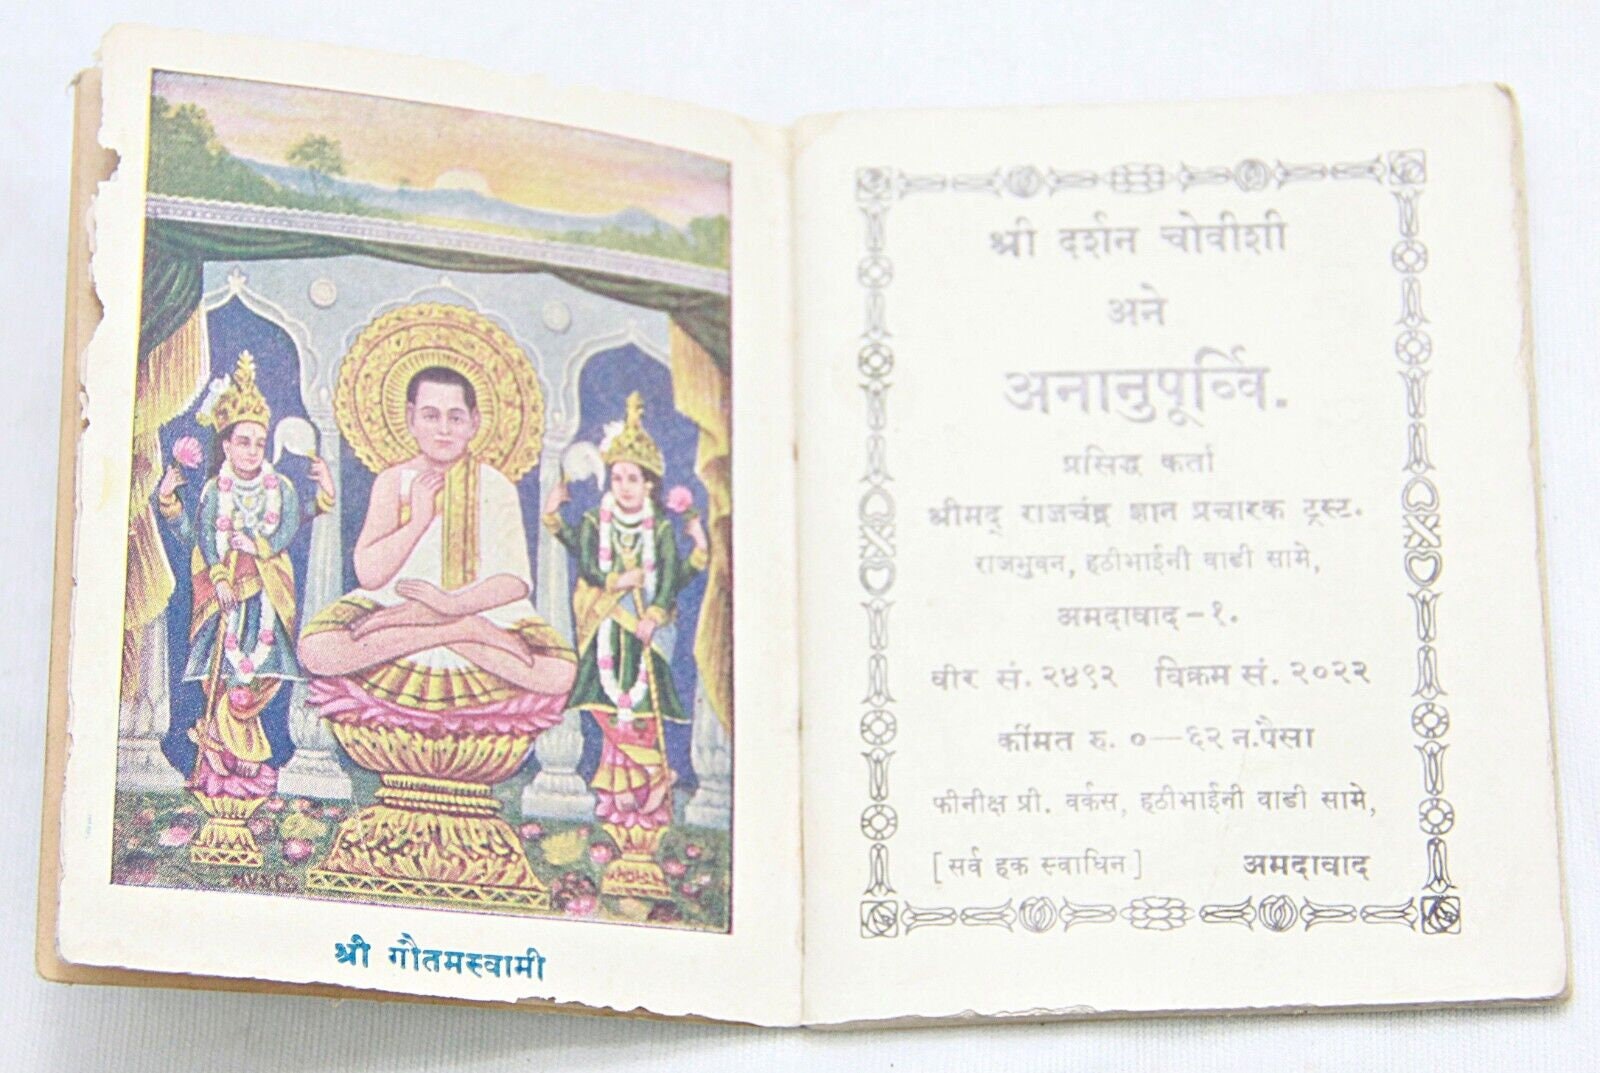 श्री गौतमस्वामी
श्री दर्शन चोवीशी
अने
अनानुपूर्व्वि.
प्रसिद्ध कर्ता
श्रीमद् राजचंद्र ज्ञान प्रचारक ट्रस्ट.
राजभुवन, हठीभाईनी वाडी सामे,
अमदावाद-१.
वीर सं. २४९२ विक्रम सं. २०२२
कींमत रु. ०—६२ न.पैसा
फीनीक्ष प्री. वर्कस, हठीभाईनी वाडी सामे,
[सर्व हक स्वाधिन] अमदावाद